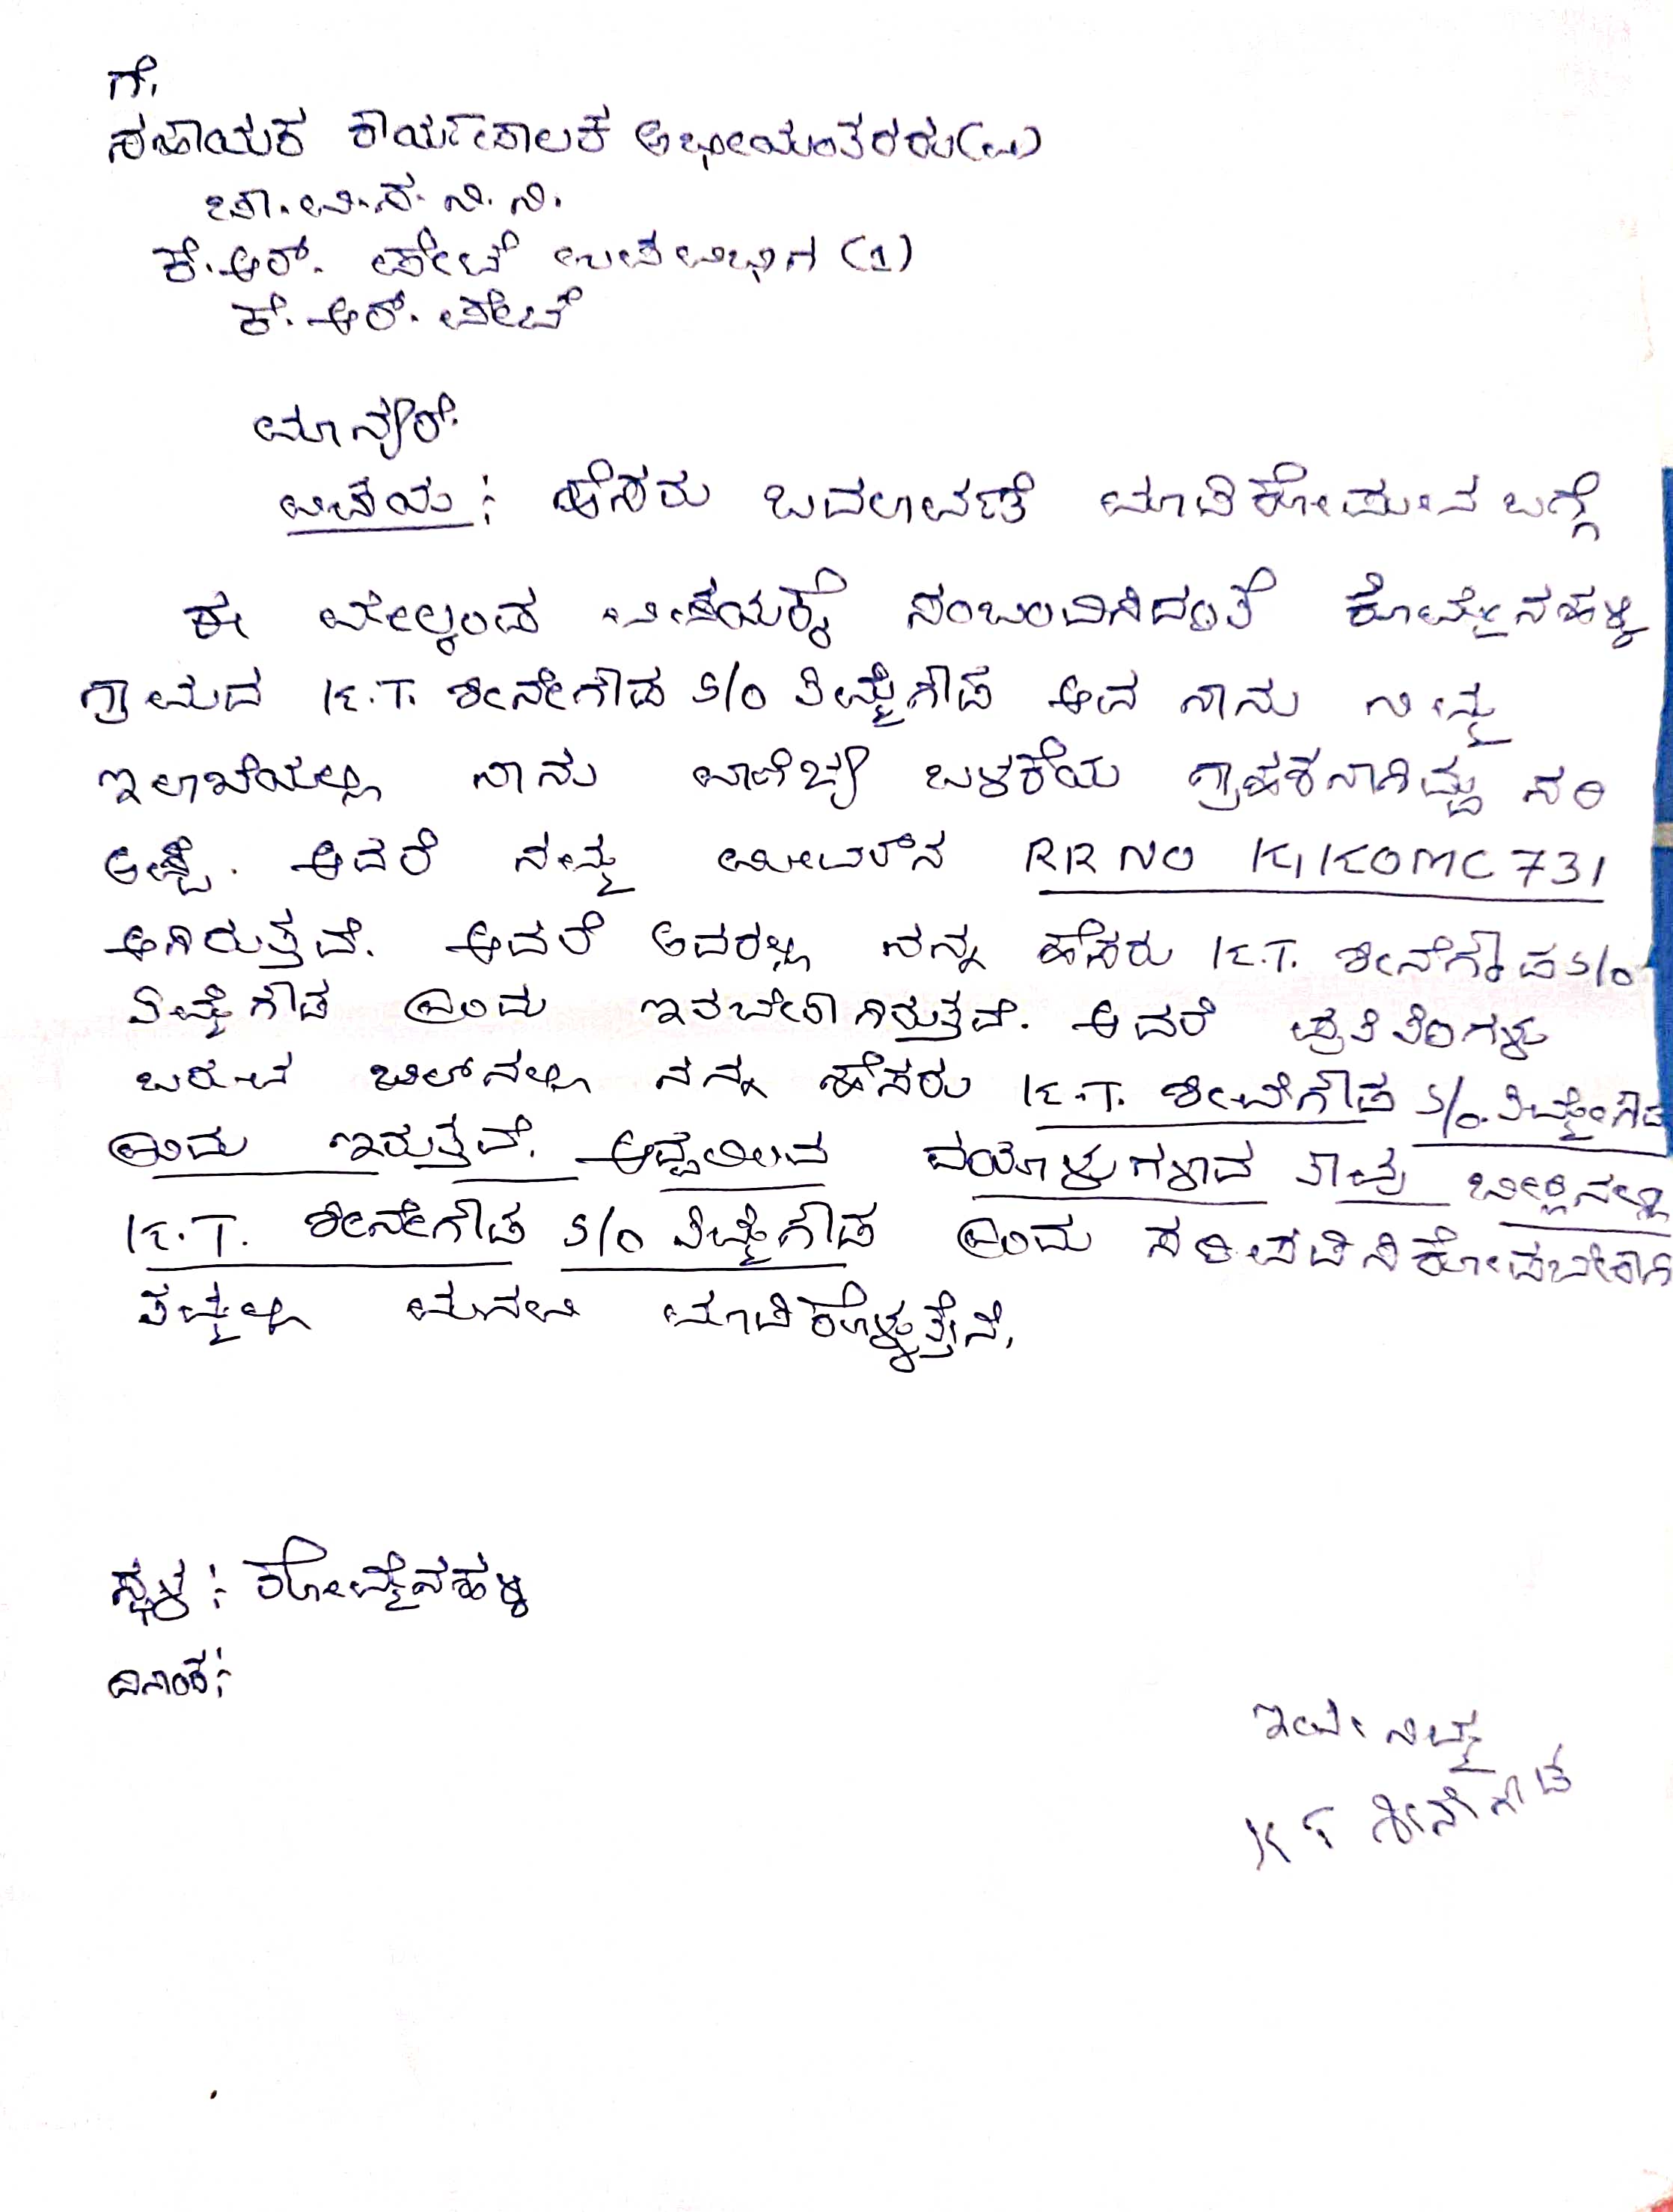 ಗೆ,
ಸಹಾಯಕ ಕಾರ್ಯಪಾಲಕ ಅಭೀಯಂತರರು(ವಿ)
ಚಾ.ವಿ.ಸ.ನಿ.ನಿ.
ಕೆ.ಆರ್. ಪೇಟೆ ಉಪವಿಭಾಗ (1)
ಕೆ.ಆರ್. ಪೇಟೆ
ಮಾನ್ಯರೆ.
ವಿಷಯ : ಹೆಸರು ಬದಲಾವಣೆ ಮಾಡಿಕೋಡುವ ಬಗ್ಗೆ
ಈ ಮೇಲ್ಕಂಡ ವಿಷಯಕ್ಕೆ ಸಂಬಂದಿಸಿದಂತೆ ಕೊಮ್ಮೇನಹಳ್ಳಿ
ಗ್ರಾಮದ K.T. ಶೀನೇಗೌಡ S/O ತಿಮ್ಮೇಗೌಡ ಆದ ನಾನು ನಿಮ್ಮ
ಇಲಾಖೆಯಲ್ಲಿ ನಾನು ವಾಣಿಜ್ಯ ಬಳಕೆಯ ಗ್ರಾಹಕನಾಗಿದ್ದು ಸರಿ
ಅಷ್ಟೆ. ಆದರೆ ನಮ್ಮ ಮೀಟರ್‌ನ RR NO K1KOMC731
ಆಗಿರುತ್ತದೆ. ಆದರೆ ಅದರಲ್ಲಿ ನನ್ನ ಹೆಸರು K.T. ಶೀನೆಗೌಡ S/O
ತಿಮ್ಮೆಗೌಡ ಎಂದು ಇರಬೇಕಾಗಿರುತ್ತದೆ. ಆದರೆ ಪ್ರತಿ ತಿಂಗಳು
ಬರುವ ಬಿಲ್‌ನಲ್ಲಿ ನನ್ನ ಹೆಸರು K.T. ಶೀಟೆಗೌಡ S/O. ತಿಮ್ಮೇಗೌಡ
ಎಂದು ಇರುತ್ತದೆ. ಆದ್ದರಿಂದ ದಯಾಳುಗಳಾದ ತಾವು ಬೀಲ್ಲಿನಲ್ಲಿ
K.T. ಶೀನೇಗೌಡ S/O ತಿಮ್ಮೆಗೌಡ ಎಂದು ಸರಿಪಡಿಸಿಕೋಡಬೇಕಾಗಿ
ತಮ್ಮಲ್ಲಿ ಮನವಿ ಮಾಡಿಕೊಳ್ಳುತ್ತೇನೆ,
ಸ್ಥಳ : ಕೋಮ್ಮೆನಹಳ್ಳಿ
ದಿನಾಂಕ :
ಇಂತಿ ನಿಮ್ಮ
K T ಶೀನೇಗೌಡ